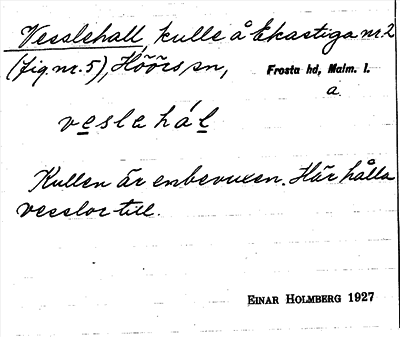 Vesslehall, kulle å Ekastiga nr. 2
(fig. nr. 5), Höörs sn, Frosta hd, Malm. l.
a.
veslehál
Kullen är enbevuxen. Här hålla
vesslor till.
EINAR HOLMBERG 1927